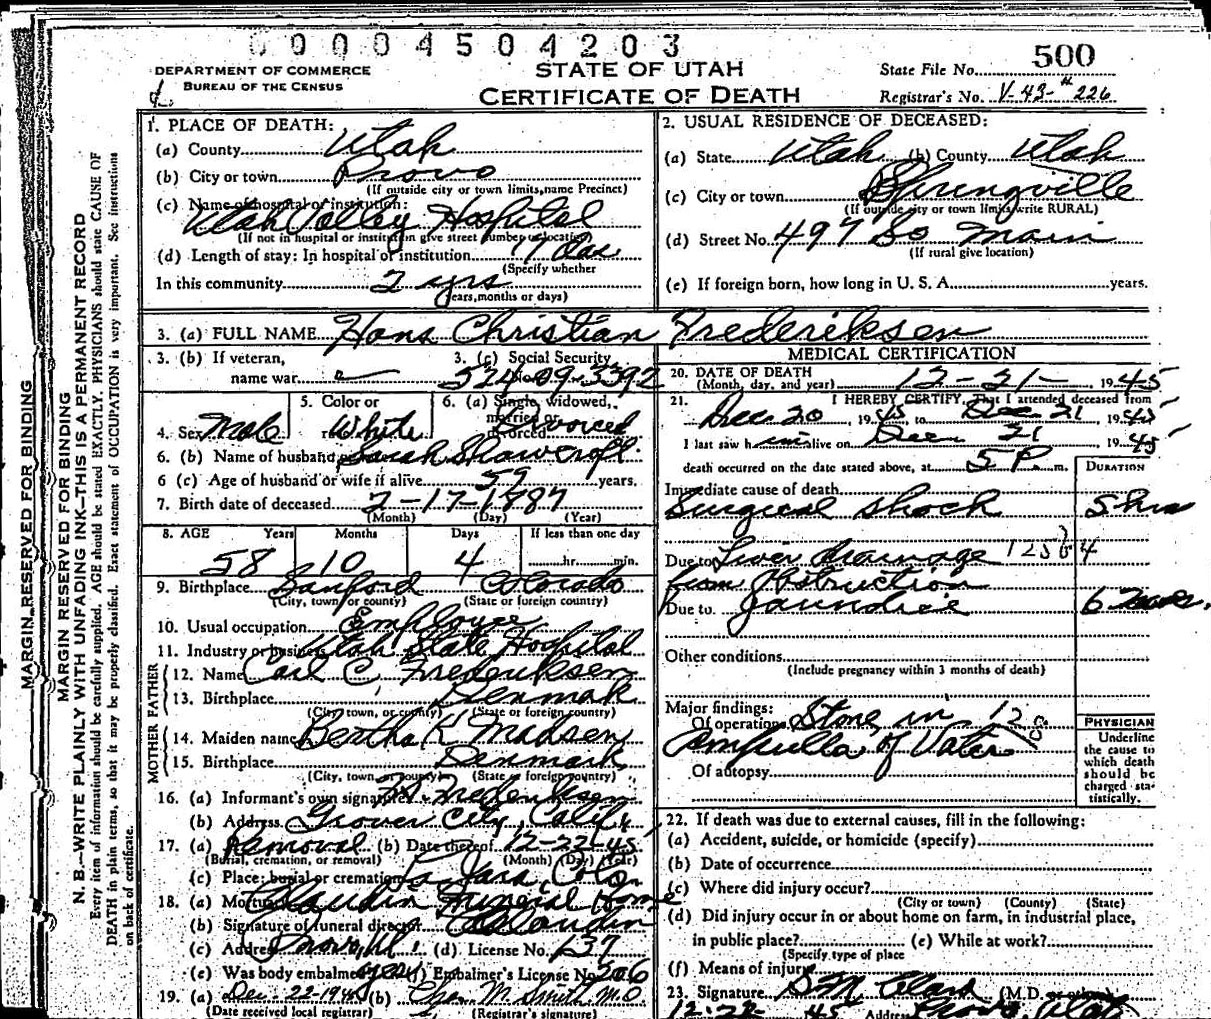 00004504203
DEPARTMENT OF COMMERCE
BUREAU OF THE CENSUS
STATE OF UTAH
CERTIFICATE OF DEATH
State File No. 500
Registrar's No. V-43-# 226
MARGIN RESERVED FOR BINDING
MARGIN RESERVED FOR BINDING
N. B.—WRITE PLAINLY WITH UNFADING INK—THIS IS A PERMANENT RECORD
Every item of information should be carefully supplied. AGE should be stated EXACTLY. PHYSICIANS should state CAUSE OF
DEATH in plain terms, so that it may be properly classified. Exact statement of OCCUPATION is very important. See instructions
on back of certificate.
1. PLACE OF DEATH:
(a) County Utah
(b) City or town Provo
(If outside city or town limits, name Precinct)
(c) Name of hospital or institution:
Utah Valley Hospital
(If not in hospital or institution give street number or location)
(d) Length of stay: In hospital or institution
(Specify whether
In this community 2 yrs
years, months or days)
2. USUAL RESIDENCE OF DECEASED:
(a) State Utah (b) County Utah
(c) City or town Springville
(If outside city or town limits, write RURAL)
(d) Street No. 497 So Main
(If rural give location)
(e) If foreign born, how long in U. S. A. years.
3. (a) FULL NAME Hans Christian Frederiksen
3. (b) If veteran, name war
3. (c) Social Security No. 524-09-3392
4. Sex Male
5. Color or race White
6. (a) Single, widowed, married or divorced Divorced
6. (b) Name of husband or wife Sarah Shawcroft
6 (c) Age of husband or wife if alive 59 years.
7. Birth date of deceased 2-17-1887
(Month) (Day) (Year)
8. AGE Years Months Days If less than one day
58 10 4 hr. min.
9. Birthplace Sanford Colorado
(City, town or county) (State or foreign country)
10. Usual occupation Employee
11. Industry or business Utah State Hospital
FATHER
12. Name Carl C. Frederiksen
13. Birthplace Denmark
(City, town, or county) (State or foreign country)
MOTHER
14. Maiden name Bertha K Madsen
15. Birthplace Denmark
(City, town or county) (State or foreign country)
16. (a) Informant's own signature Frederiksen
(b) Address Grover City, Calif
17. (a) Removal (b) Date thereof 12-22-45
(Burial, cremation, or removal) (Month) (Day) (Year)
(c) Place: burial or cremation La Jara, Colo
18. (a) Mortuary Claudin Funeral Home
(b) Signature of funeral director Claudin
(c) Address Provo, Ut. (d). License No. 137
(e) Was body embalmed yes (f) Embalmer's License No. 206
19. (a) Dec-22-1945 (b) Chas M. Smith M.D
(Date received local registrar) (Registrar's signature)
MEDICAL CERTIFICATION
20. DATE OF DEATH
(Month, day, and year) 12-21-, 1945
21. I HEREBY CERTIFY, That I attended deceased from
Dec 20, 1945 to Dec 21, 1945
I last saw him alive on Dec 21 1945
death occurred on the date stated above, at 5 P. m.
DURATION
Immediate cause of death
Surgical shock 5 hrs
Due to Liver drainage
from Obstruction
Due to Jaundice
Other conditions
(Include pregnancy within 3 months of death)
Major findings:
Of operations Stone in
Ampulla of Vater
Of autopsy
PHYSICIAN
Underline
the cause to
which death
should be
charged sta-
tistically.
22. If death was due to external causes, fill in the following:
(a) Accident, suicide, or homicide (specify)
(b) Date of occurrence
(c) Where did injury occur?
(City or town) (County) (State)
(d) Did injury occur in or about home on farm, in industrial place,
in public place? (e) While at work?
(Specify type of place
(f) Means of injury
23. Signature S M Clark (M.D. or other)
12-22-45 Address Provo, Utah